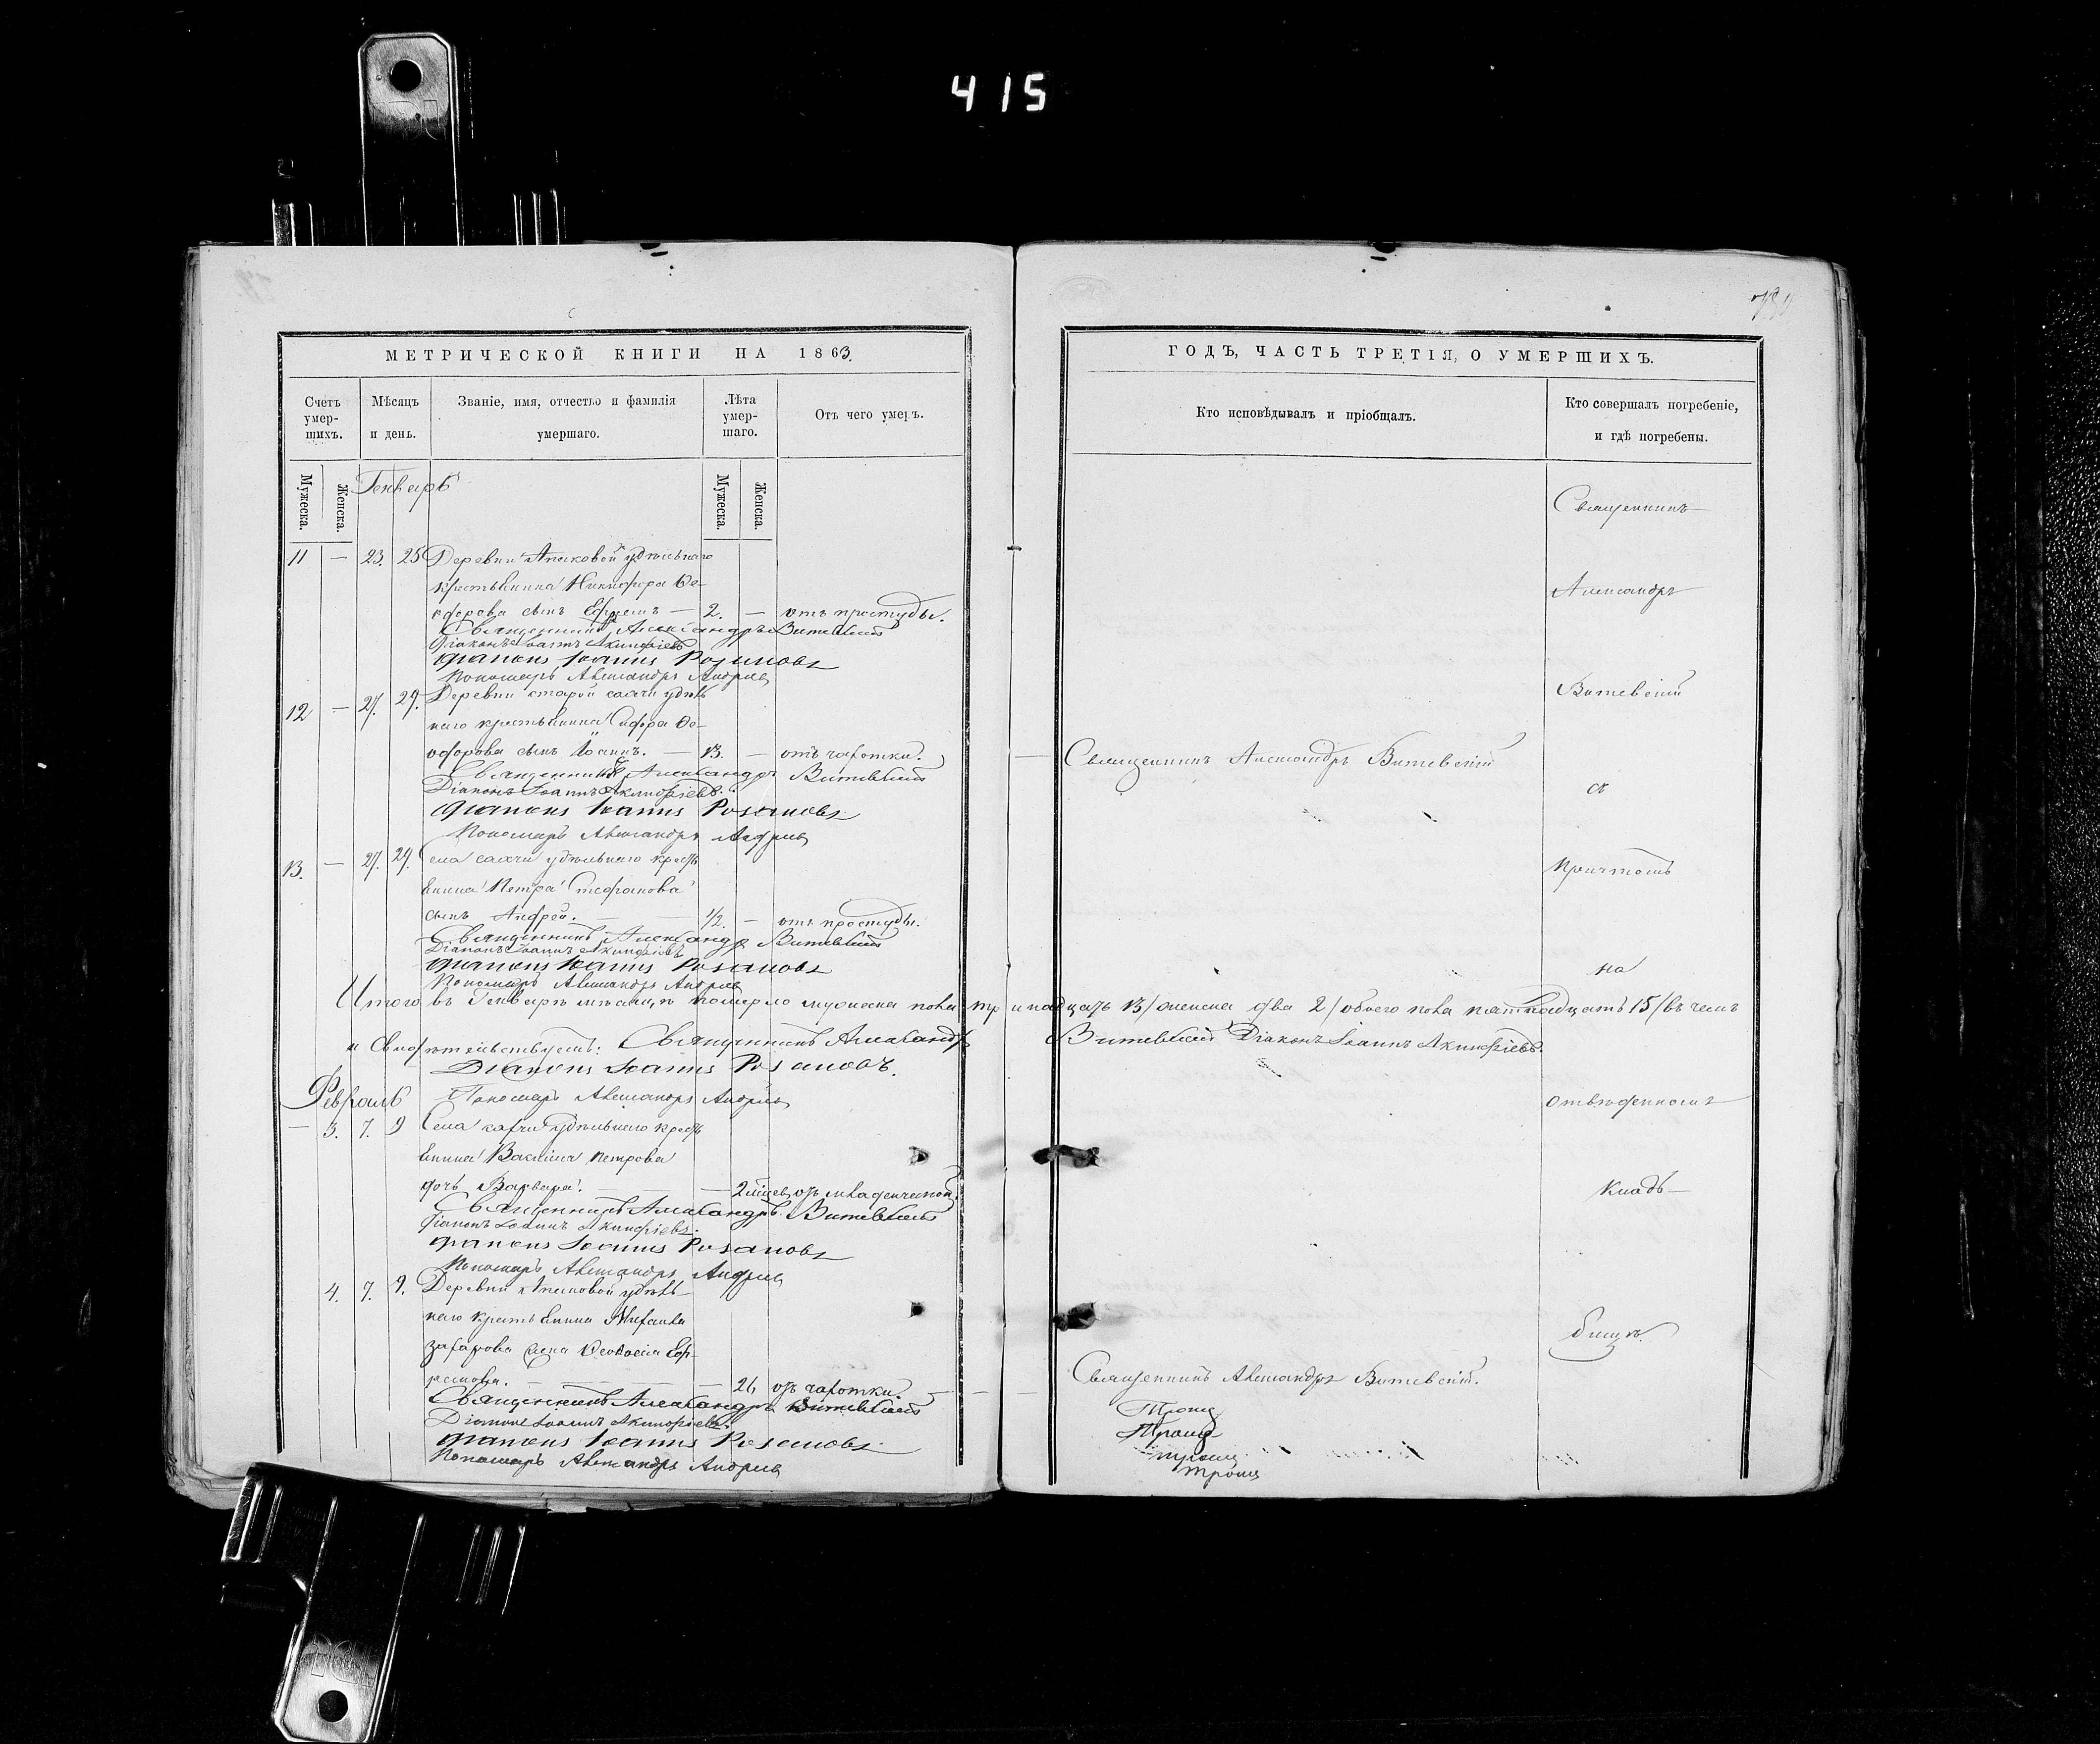 415
МЕТРИЧЕСКОЙ КНИГИ НА 1863.
Счетъ умер-шихъ.
Мѣсяцъ и день.
Званіе, имя, отчество и фамилія умершаго.
Лѣта умер-шаго.
Отъ чего умеръ.
Мужеска.
Женска.
Мужеска.
Женска.
Генварь
11 — 23. 25 Деревни Апаковой удѣльнаго
крестьянина Никифора Ѳе-
офорова сынъ Ефремъ — 2. — отъ простуды.
Священникъ Александръ Витевскій
Діаконъ Іоаннъ Акинфіевъ
Діаконъ Іоаннъ Розановъ
Пономарь Александръ Андреев
12 — 27. 29. Деревни старой удѣль
наго крестьянина Ѳе-
офорова сынъ Іоаннъ. — 13. — отъ чахотки.
Священникъ Александръ Витевскій
Діаконъ Іоаннъ Акинфіевъ.
Діаконъ Іоаннъ Розановъ
Пономарь Александръ Андреев
13. — 27. 29. Села удѣльнаго кресть
янина Петра Стефанова
сынъ Андрей. — 1/2. — отъ простуды.
Священникъ Александръ Витевскій
Діаконъ Іоаннъ Акинфіевъ
Діаконъ Іоаннъ Розановъ
Пономарь Александръ Андреев
Итого въ Генварѣ мѣсяцѣ померло мужеска пола тринадцать 13/ женска два 2/ обоего пола пятнадцать 15/ въ чемъ
и свидѣтельствуемъ: Священникъ Александръ Витевскій Діаконъ Іоаннъ Акинфіевъ.
Діаконъ Іоаннъ Розановъ.
Пономарь Александръ Андреев
Февраль
— 3. 7. 9 Села удѣльнаго кресть
янина Василія Петрова
дочь Варвара. — 2 мѣсяц. отъ младенческой
Священникъ Александръ Витевскій
Діаконъ Іоаннъ Акинфіевъ.
Діаконъ Іоаннъ Розановъ
Пономарь Александръ Андреев
4. 7. 9. Деревни Апаковой удѣль
наго крестьянина
Захарова жена Еф-
ремова. — 26, отъ чахотки. —
Священникъ Александръ Витевскій
Діаконъ Іоаннъ Акинфіевъ.
Діаконъ Іоаннъ Розановъ
Пономарь Александръ Андреев
ГОДЪ, ЧАСТЬ ТРЕТІЯ, О УМЕРШИХЪ.
Кто исповѣдывалъ и пріобщалъ.
Кто совершалъ погребеніе, и гдѣ погребены.
— Священникъ Александръ Витевскій
Священникъ Александръ Витевскій.
Священникъ
Александръ
Витевскій
съ
причтомъ
на
отведенномъ
клад-
бищѣ.